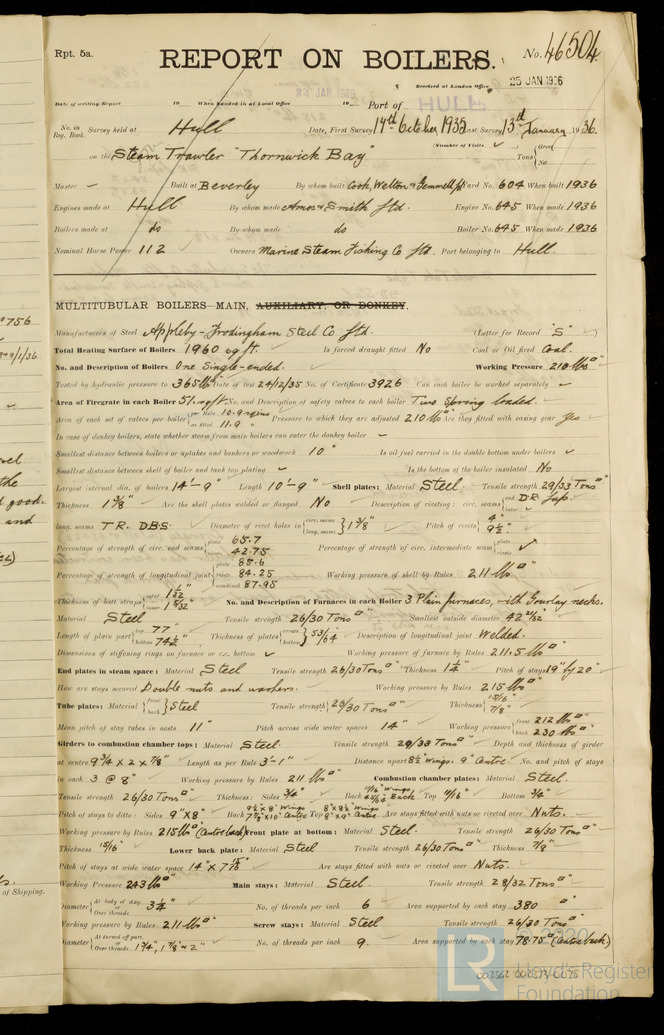 Rpt. 5a.
REPORT ON BOILERS.
No. 46504
Received at London Office
25 JAN 1936
Date of writing Report 19 When handed in at Local Office 19 Port of HULL
No. in Reg. Book. Survey held at Hull Date, First Survey 14th October, 1935 Last Survey 13th January, 1936.
(Number of Visits
on the Steam Trawler "Thornwick Bay" Tons {Gross Net
Master Built at Beverley By whom built Cook, Welton & Gemmell Ld Yard No. 604 When built 1936
Engines made at Hull By whom made Amos & Smith Ltd. Engine No. 645 When made 1936
Boilers made at do By whom made do Boiler No. 645 When made 1936
Nominal Horse Power 112 Owners Marine Steam Fishing Co Ltd. Port belonging to Hull.
MULTITUBULAR BOILERS—MAIN, AUXILIARY, OR DONKEY.
Manufacturers of Steel Appleby-Frodingham Steel Co Ltd. (Letter for Record "S"
Total Heating Surface of Boilers 1960 sq ft. Is forced draught fitted No Coal or Oil fired Coal.
No. and Description of Boilers One Single-ended. Working Pressure 210 lbs
Tested by hydraulic pressure to 365 lbs Date of test 24/12/35 No. of Certificate 3926 Can each boiler be worked separately
Area of Firegrate in each Boiler 51 sq ft. No. and Description of safety valves to each boiler Two spring loaded.
Area of each set of valves per boiler {per Rule as fitted 11.9 Pressure to which they are adjusted 210 lbs Are they fitted with easing gear Yes
In case of donkey boilers, state whether steam from main boilers can enter the donkey boiler
Smallest distance between boilers or uptakes and bunkers or woodwork 10" Is oil fuel carried in the double bottom under boilers
Smallest distance between shell of boiler and tank top plating Is the bottom of the boiler insulated No
Largest internal dia. of boilers 14'-9" Length 10'-9" Shell plates: Material Steel. Tensile strength 29/33 Tons
Thickness 1 3/8" Are the shell plates welded or flanged No Description of riveting: circ. seams {end D.R. Lap. inter.
long. seams T.R. D.B.S. Diameter of rivet holes in {circ. seams long. seams} 1 3/8" Pitch of rivets {4" 9 1/2"
Percentage of strength of circ. end seams {plate 65.7 rivets 42.75 Percentage of strength of circ. intermediate seam {plate rivets
Percentage of strength of longitudinal joint {plate 85.6 rivets 84.25 combined 87.95 Working pressure of shell by Rules 211 lbs
Thickness of butt straps {outer 1 1/32" inner 1 5/32" No. and Description of Furnaces in each Boiler 3 Plain furnaces, with Gourlay necks.
Material Steel Tensile strength 26/30 Tons Smallest outside diameter 42 21/32"
Length of plain part {top 77" bottom 74 1/2" Thickness of plates {crown bottom} 53/64 Description of longitudinal joint Welded.
Dimensions of stiffening rings on furnace or c.c. bottom Working pressure of furnace by Rules 211.5 lbs
End plates in steam space: Material Steel Tensile strength 26/30 Tons Thickness 1 1/4" Pitch of stays 19" by 20"
How are stays secured Double nuts and washers. Working pressure by Rules 215 lbs
Tube plates: Material {front back} Steel Tensile strength 26/30 Tons Thickness {15/16" 7/8"
Mean pitch of stay tubes in nests 11" Pitch across wide water spaces 14" Working pressure {front 212 lbs back 230 lbs
Girders to combustion chamber tops: Material Steel. Tensile strength 29/33 Tons Depth and thickness of girder
at centre 9 3/4 x 2 x 7/8" Length as per Rule 3'-1" Distance apart 8 1/2" wings. 9" Centre No. and pitch of stays
in each 3 @ 8" Working pressure by Rules 211 lbs Combustion chamber plates: Material Steel.
Tensile strength 26/30 Tons Thickness: Sides 3/4" Back 11/16" Wings, 45/64 Back Top 11/16" Bottom 3/4"
Pitch of stays to ditto: Sides 9"x8" Back 9 1/2 x 8" Wings Top 8" x 8 1/2 Wings 8" x 9" Centre Are stays fitted with nuts or riveted over Nuts.
Working pressure by Rules 215 lbs (Centre back) Front plate at bottom: Material Steel. Tensile strength 26/30 Tons
Thickness 15/16" Lower back plate: Material Steel Tensile strength 26/30 Tons Thickness 7/8"
Pitch of stays at wide water space Are stays fitted with nuts or riveted over Nuts.
Working Pressure 243 lbs Main stays: Material Steel. Tensile strength 28/32 Tons
Diameter {At body of stay, or Over threads 3 1/4" No. of threads per inch 6 Area supported by each stay 380
Working pressure by Rules 211 lbs Screw stays: Material Steel Tensile strength 26/30 Tons
Diameter {At turned off part, or Over threads 1 3/4", 1 7/8" & 2" No. of threads per inch 9. Area supported by each stay 78.75 (Centre back)
© 2020
LR
Lloyd's Register
Foundation
756
9/1/36
the
good.
and
s. of Shipping.